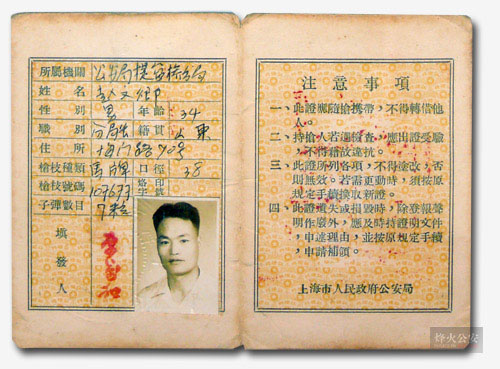 所屬機關 公安局提篮桥分局
姓名 赵文卿
性別 男 年齡 34
職別 籍貫 山東
住所 海门路90号
槍枝種類 馬牌 口徑 38
槍枝號碼 烙印
子彈數目 7粒
填發人
注意事項
一、此證應隨槍攜帶，不得轉借他
人。
二、持槍人若遇檢查，應出證受驗
，不得藉故違抗。
三、此證所列各項，不得塗改，否
則無效。若需更動時，須按原
規定手續換取新證。
四、此證遺失或損毀時，除登報聲
明作廢外，應及時持證明文件
，申述理由，並按原規定手續
，申請補領。
上海市人民政府公安局
烽火公安